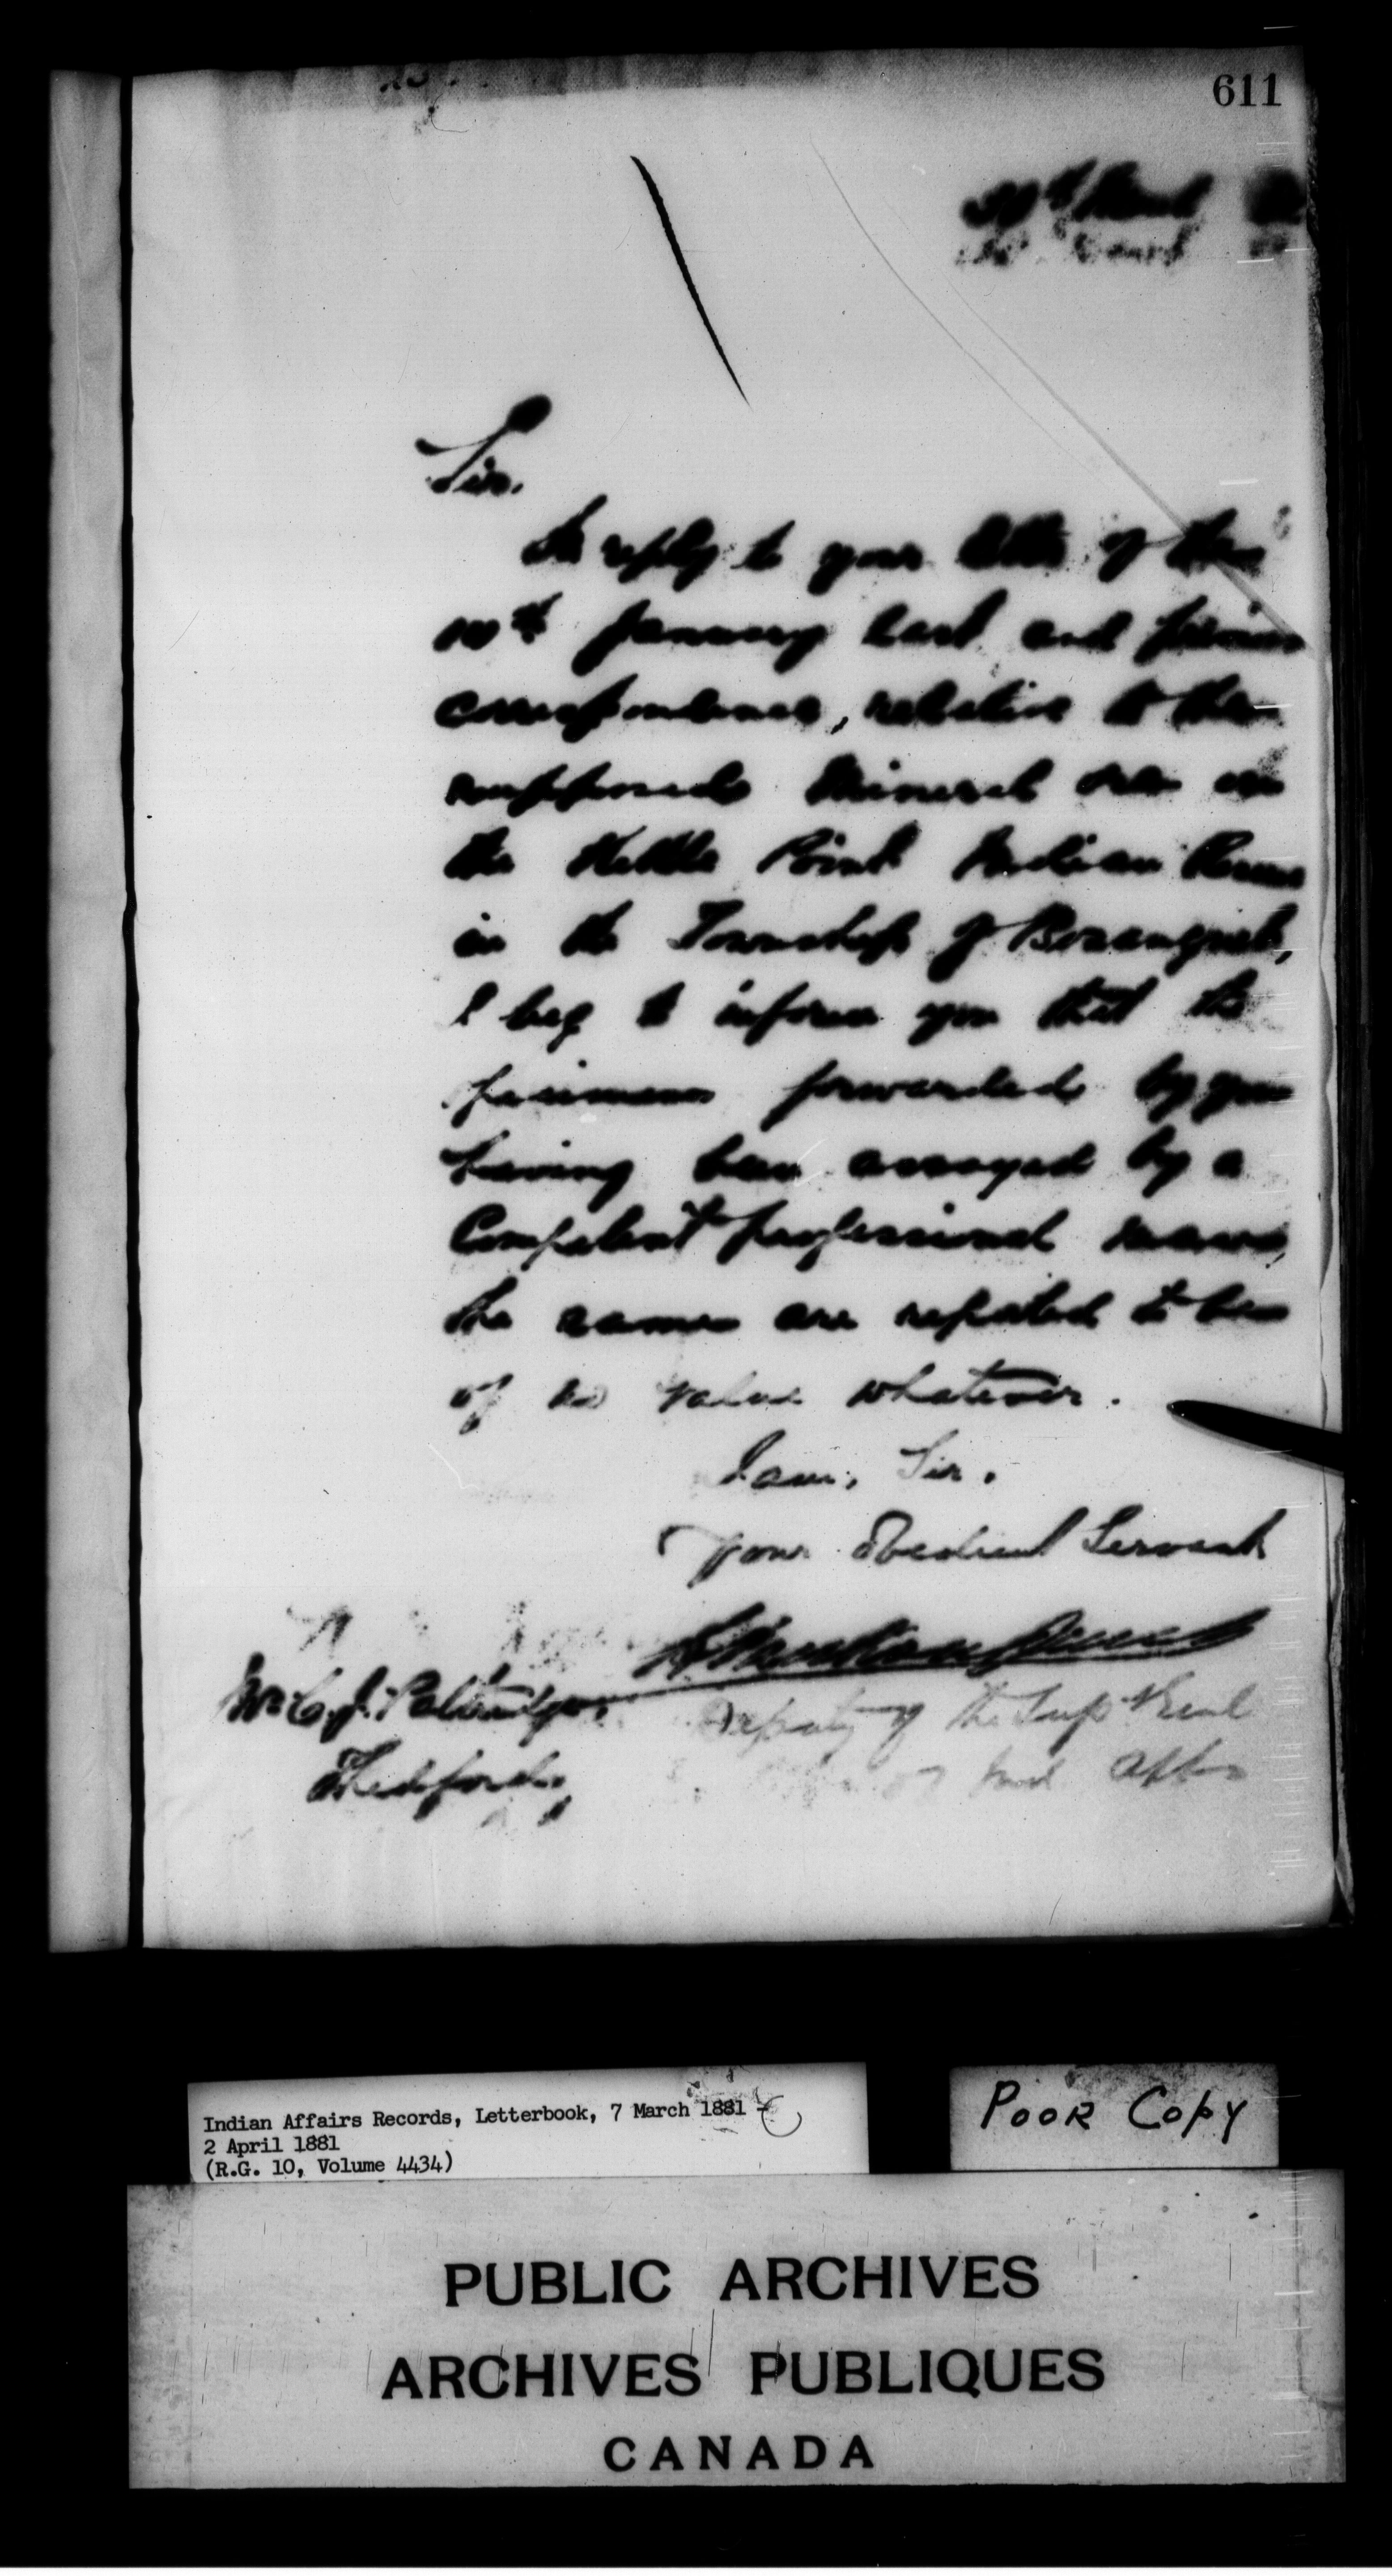 611
30th March 81
Sir.
In reply to your letter of the
10th January last and previous
correspondence, relative to the
supposed mineral ore on
the Kettle Point Indian Reserve
in the Township of Bosanquet,
I beg to inform you that the
specimens forwarded by you
having been assayed by a
Competent professional man,
the same are reported to be
of no value whatever.
I am, Sir.
Your Obedient Servant
Deputy of the Supt Genl
of Ind Affrs
Mr C. J.
Thedford,
Indian Affairs Records, Letterbook, 7 March 1881 -
2 April 1881
(R.G. 10, Volume 4434)
POOR COPY
PUBLIC ARCHIVES
ARCHIVES PUBLIQUES
CANADA